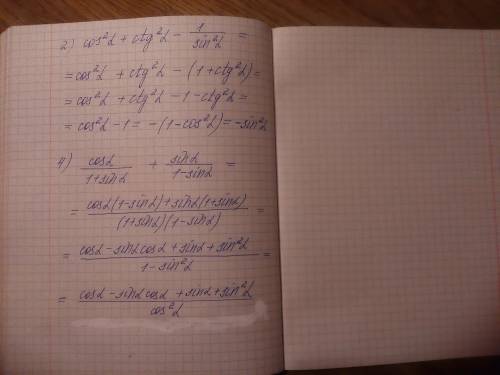 2) cos²α + ctg²α - 1/sin²α =
= cos²α + ctg²α - (1 + ctg²α) =
= cos²α + ctg²α - 1 - ctg²α =
= cos²α - 1 = -(1 - cos²α) = -sin²α
4) cosα/(1+sinα) + sinα/(1-sinα) =
= (cosα(1-sinα)+sinα(1+sinα))/((1+sinα)(1-sinα)) =
= (cosα - sinα cosα + sinα + sin²α)/(1-sin²α) =
= (cosα - sinα cosα + sinα + sin²α)/cos²α